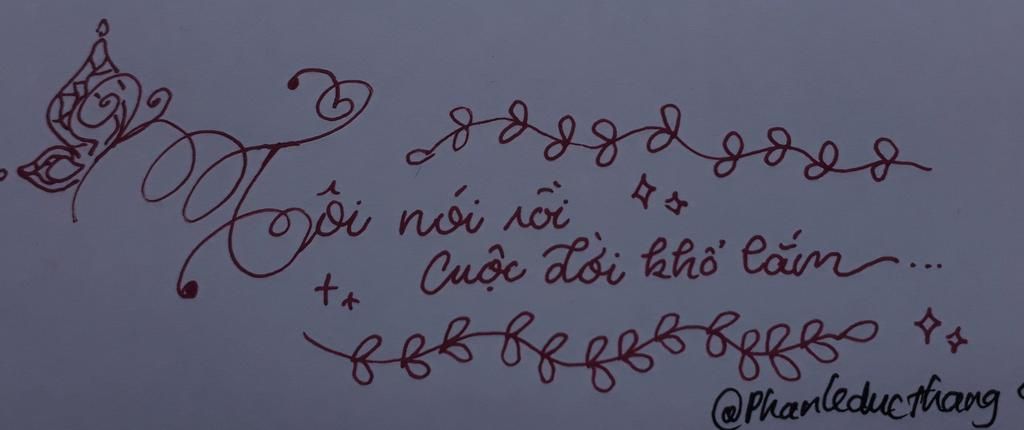 Tôi nói rồi
Cuộc đời khổ lắm...
@Phanleducthang